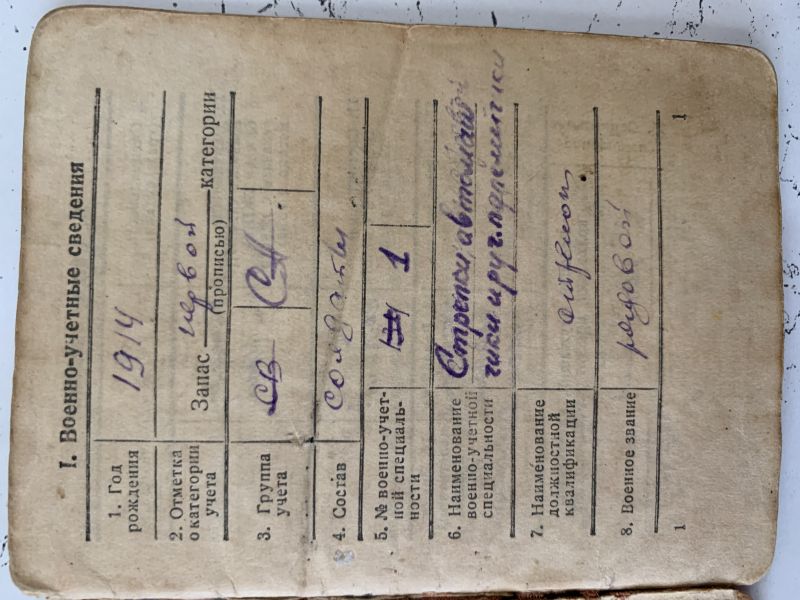 I. Военно-учетные сведения
1. Год рождения
1914
2. Отметка о категории учета
Запас первой категории
(прописью)
3. Группа учета
СВ
СА
4. Состав
солдаты
5. № военно-учет-
ной специаль-
ности
1
6. Наименование
военно-учетной
специальности
Стрелки, автоматчи
чики и руч. пулеметчики
7. Наименование
должностной
квалификации
8. Военное звание
рядовой
1
1